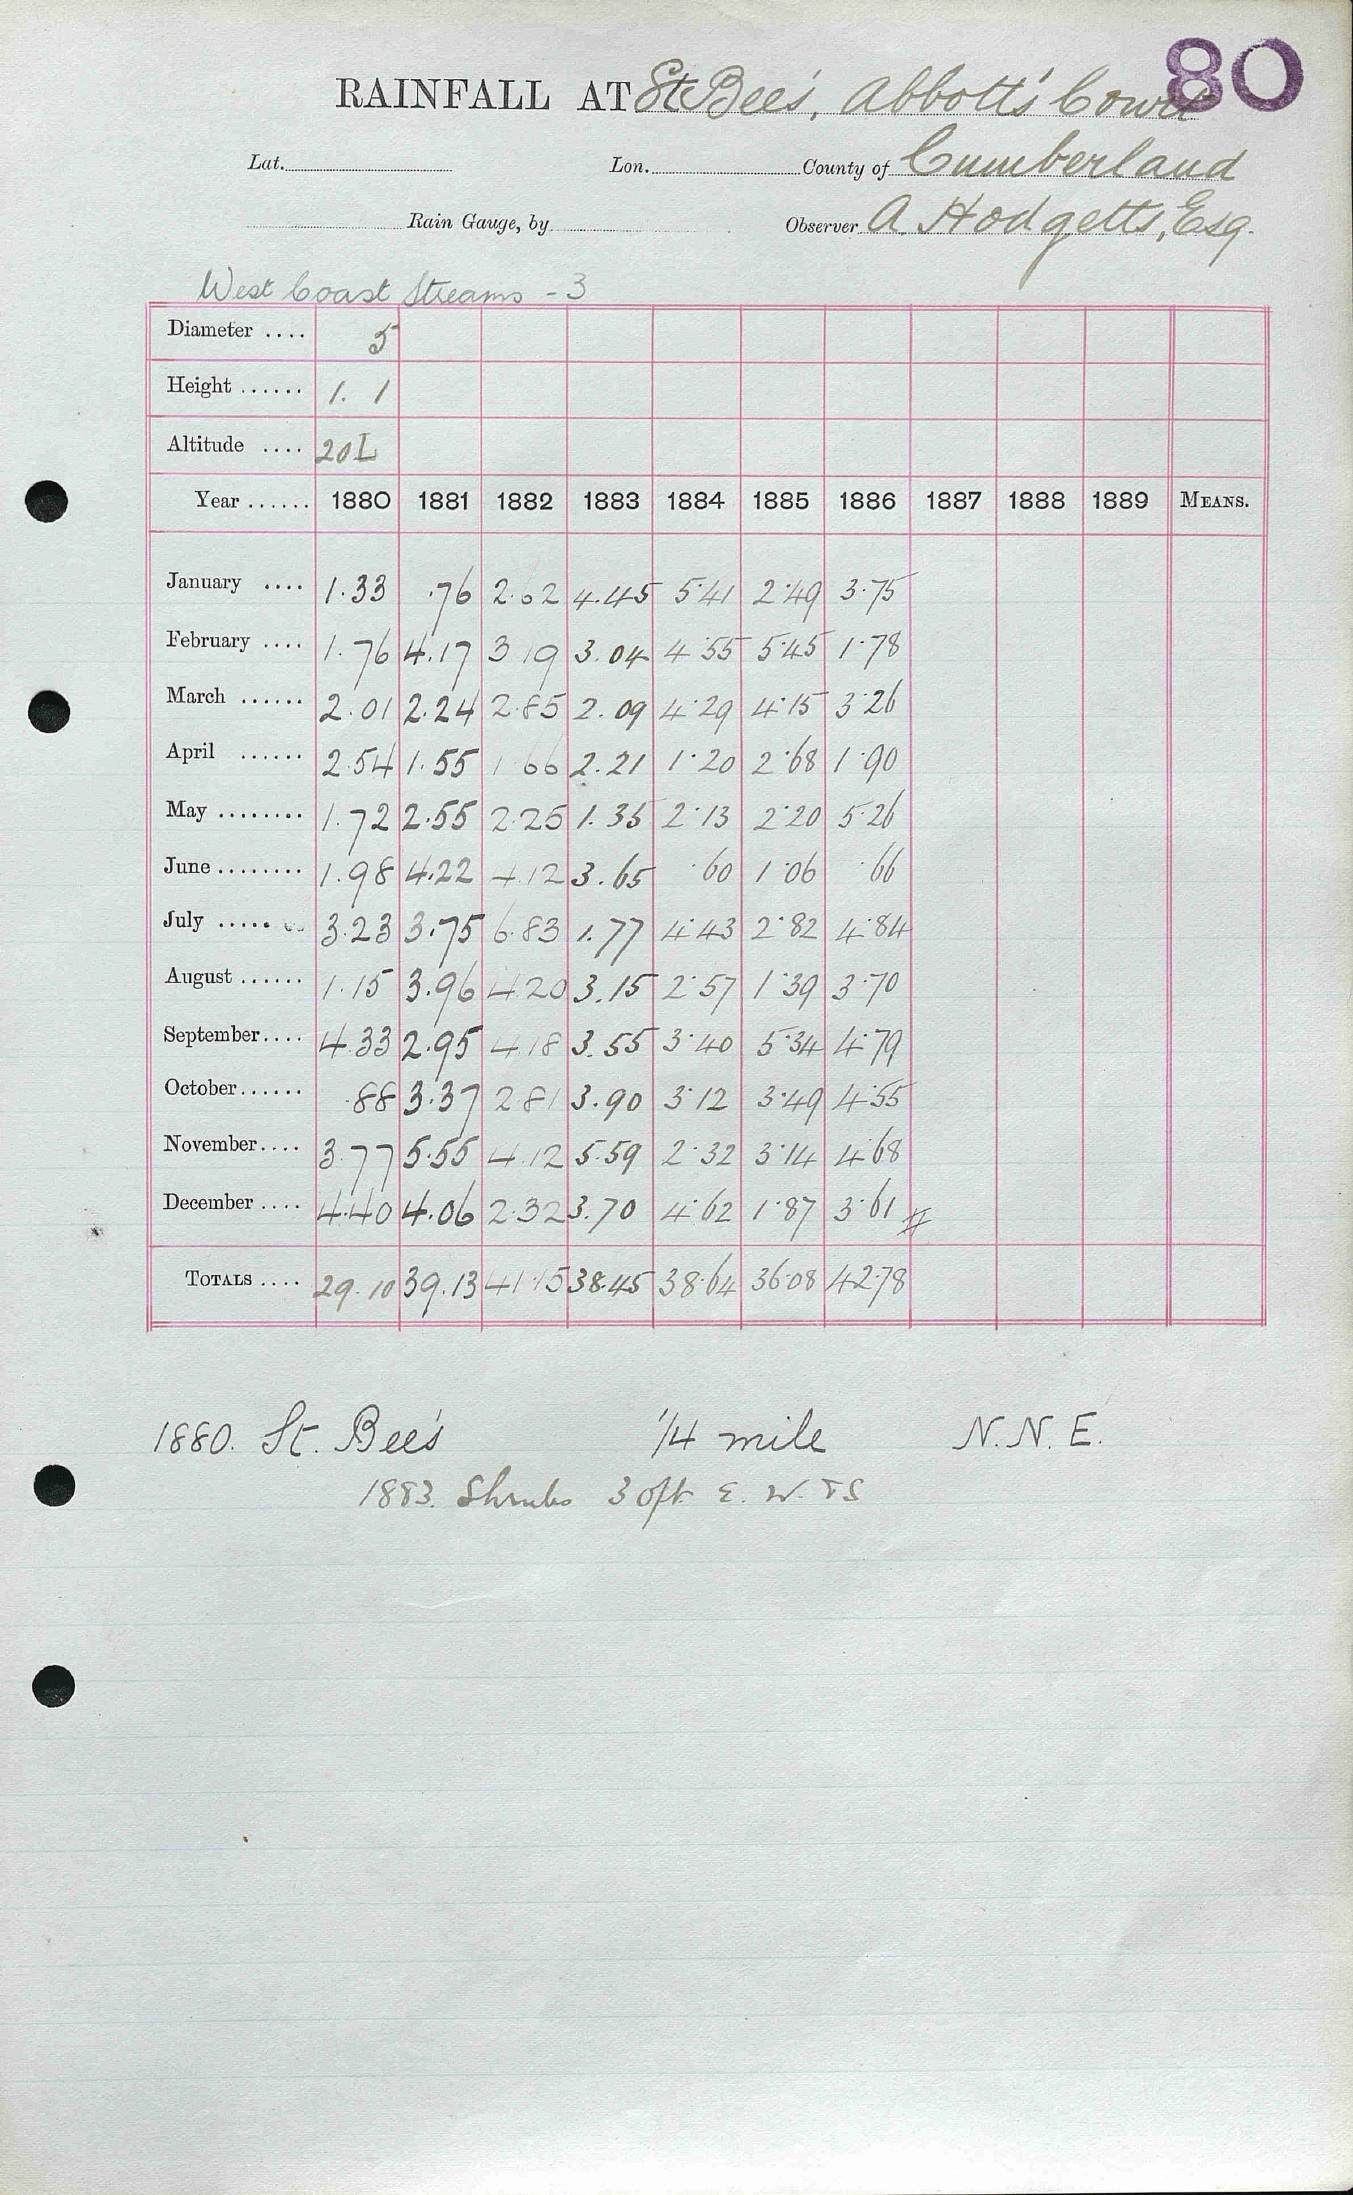 80
RAINFALL AT St Bee's, Abbott's Court
Lat. Lon. County of Cumberland
Rain Gauge, by Observer A. Hodgetts, Esq.
West Coast Streams - 3
Diameter .... 5
Height ...... 1. 1
Altitude .... 20L
Year ...... 1880 1881 1882 1883 1884 1885 1886 1887 1888 1889 MEANS.
January .... 1.33 .76 2.62 4.45 5.41 2.49 3.75
February .... 1.76 4.17 3 19 3.04 4.55 5.45 1.78
March ...... 2.01 2.24 2.85 2.09 4.29 4.15 3.26
April ...... 2.54 1.55 1 66 2.21 1.20 2.68 1.90
May ........ 1.72 2.55 2.25 1.35 2.13 2.20 5.26
June ........ 1.98 4.22 4.12 3.65 .60 1.06 .66
July ..... 3.23 3.75 6.83 1.77 4.43 2.82 4.84
August ...... 1.15 3.96 4.20 3.15 2.57 1.39 3.70
September .... 4.33 2.95 4.18 3.55 3.40 5.34 4.79
October ...... .88 3.37 2.81 3.90 3.12 3.49 4.55
November .... 3.77 5.55 4.12 5.59 2.32 3.14 4.68
December .... 4.40 4.06 2.32 3.70 4.62 1.87 3.61 #
TOTALS .... 29.10 39.13 41.15 38.45 38.64 36.08 42.78
1880. St. Bee's 1/4 mile N. N. E.
1883. Shrubs 30ft E. W. & S